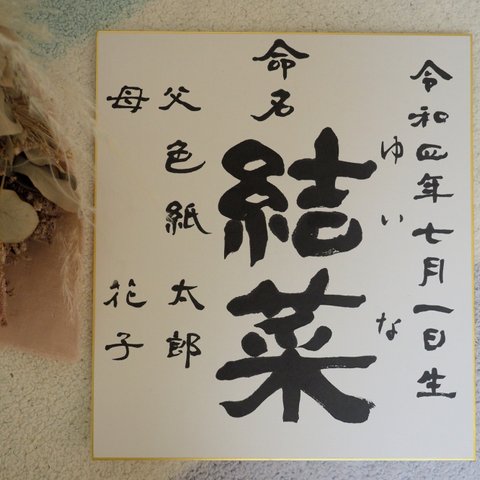 令和四年七月一日生
ゆいな
命名
結菜
父色紙太郎
母花子